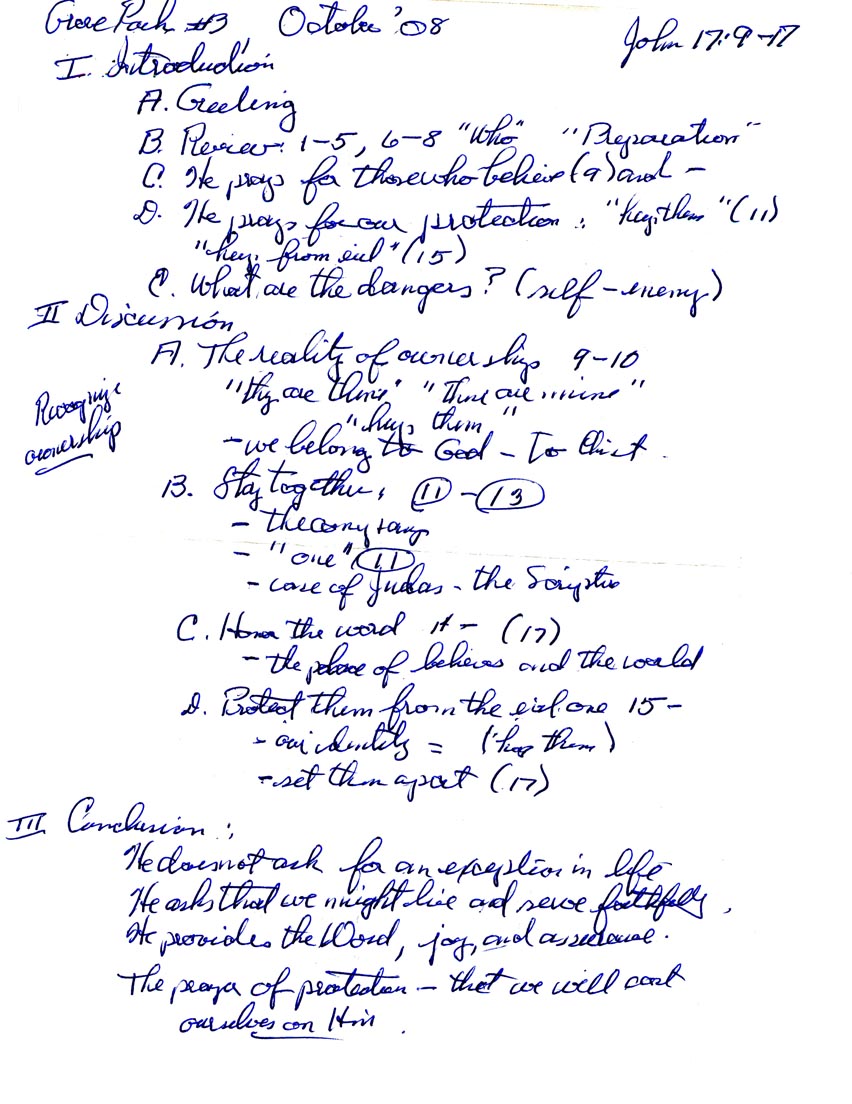 Grace Park #3, October '08 John 17:9-17
I. Introduction
A. Greeting
B. Review: 1-5, 6-8 "Who" "Preparation"
C. He prays for those who believe (9) and –
D. He prays for our protection: "keep them" (11)
"keep from evil" (15)
E. What are the dangers? (self-enemy)
II Discussion
A. The reality of ownership 9-10
"They are thine" "Thine are mine"
"keep them"
Recognize
ownership
- we belong to God - To Christ.
B. Stay together, 11 - 13
- the
- "one" 11
- case of Judas - the Scripture
C. Honor the word 14 - (17)
- the place of believers and the world
D. Protect them from the evil one 15-
- our identity = (keep them)
- set them apart (17)
III Conclusion:
He does not ask for an exception in life
He asks that we might live and serve faithfully.
He provides the Word, joy, and assurance.
The prayer of protection – that we will cast
ourselves on Him.